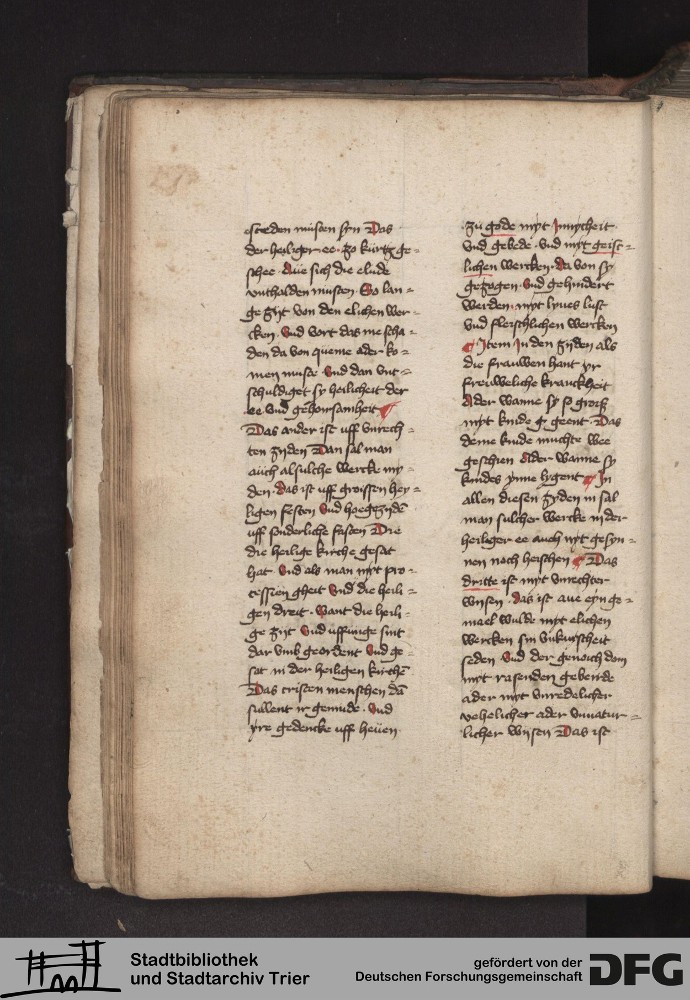 steden müsten syn Das
der heiliger ee zo kurtz ge=
schee Aue sich die elude
vnthalden musten So lan=
ge zijt von den elichen wer=
cken Vnd vort das me scha=
den da von queme ader ko=
men muste Vnd dan vnt=
schuldiget sy heilicheit der
ee Vnd gehorsamheit ¶
Das ander ist uff vnrech=
ten zijden Dan sal man
auch alsulche wercke my=
den Das ist uff groissen hey=
ligen festen Vnd hoegezijdē
uff sonderliche fasten Die
die heilige kirche gesat
hat Vnd als man myt pro=
cessien gheit Vnd die heili=
gen dreit Want die heili=
ge zijt Vnd uffunge sint
dar vmb geordent Vnd ge=
sat in der heiligen kirchē
Das cristen menschen dā
sullent ir gemude Vnd
yre gedencke uff heuen
zu gode myt Innycheit
vnd gebede vnd myt geist=
lichen wercken da von sy
gezogen Vnd gehindert
werden myt lyues lust
vnd fleischlichen wercken
¶ Item In den zijden als
die frauwen hant yr
freuweliche kranckheit
Ader wanne sy so groiß
myt kinde geent Das
deme kinde muchte wee
geschien Ader wanne sy
kindes ynne lygent ¶ In
allen diesen zyden in sal
man sulcher wercke in der
heiliger ee auch nyt gesyn=
nen noch heischen ¶ Das
dritte ist myt vnrechter
wijsen das ist aue eyn ge=
mael wulde myt elichen
wercken sin vnkuischeit
seden Vnd der genoich dom
myt rasenden geberde
ader myt vnredelicher
vehelicher ader vnnatur=
licher wijsen Das ist
Stadtbibliothek
und Stadtarchiv Trier
gefördert von der
Deutschen Forschungsgemeinschaft
DFG